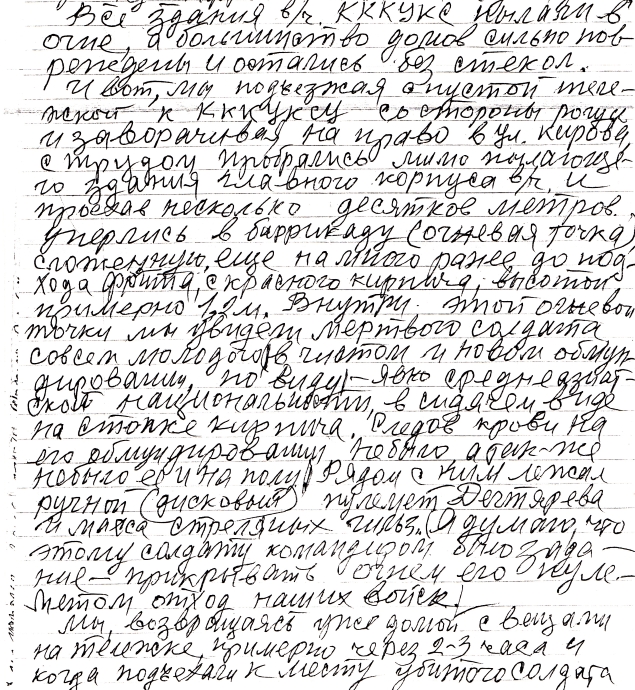 Все здания в/ч. КККУКС пылали в
огне, а большинство домов сильно пов-
реждены и остались без стекол.
И вот, мы подъезжая с пустой теле-
жкой к КККУКСу со стороны рощи
и заворачивая на право в ул. Кирова,
с трудом пробрались мимо пылающе-
го здания главного корпуса в/ч. и
проехав несколько десятков метров.
уперлись в баррикаду (огневая точка)
сложенную, еще на много ранее до под-
хода фронта, с красного кирпича, высотой
примерно 1,2 м. Внутри этой огневой
точки мы увидели мертвого солдата
совсем молодого (в чистом и новом обмун-
дировании, по виду) – явно среднеазиат-
ской национальности, в сидячем виде
на стопке кирпича. Следов крови на
его обмундировании небыло а так-же
небыло её и на полу. Рядом с ним лежал
ручной (дисковый) пулемет Дегтярева
и масса стреляных гильз. (Я думаю, что
этому солдату командиром было зада-
ние – прикрывать огнем его пуле-
метом отход наших войск!
Мы, возвращаясь уже домой с вещами
на тележке, примерно через 2-3 часа и
когда подъехали к месту убитого солдата